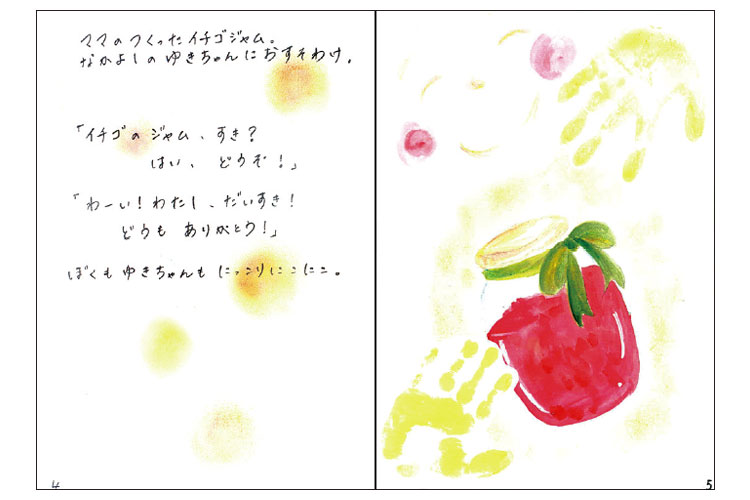 ママのつくったイチゴジャム。
なかよしのゆきちゃんにおすそわけ。
「イチゴのジャム、すき？
はい、どうぞ！」
「わーい！わたし、だいすき！
どうもありがとう！」
ぼくもゆきちゃんもにっこりにこにこ。
4
5